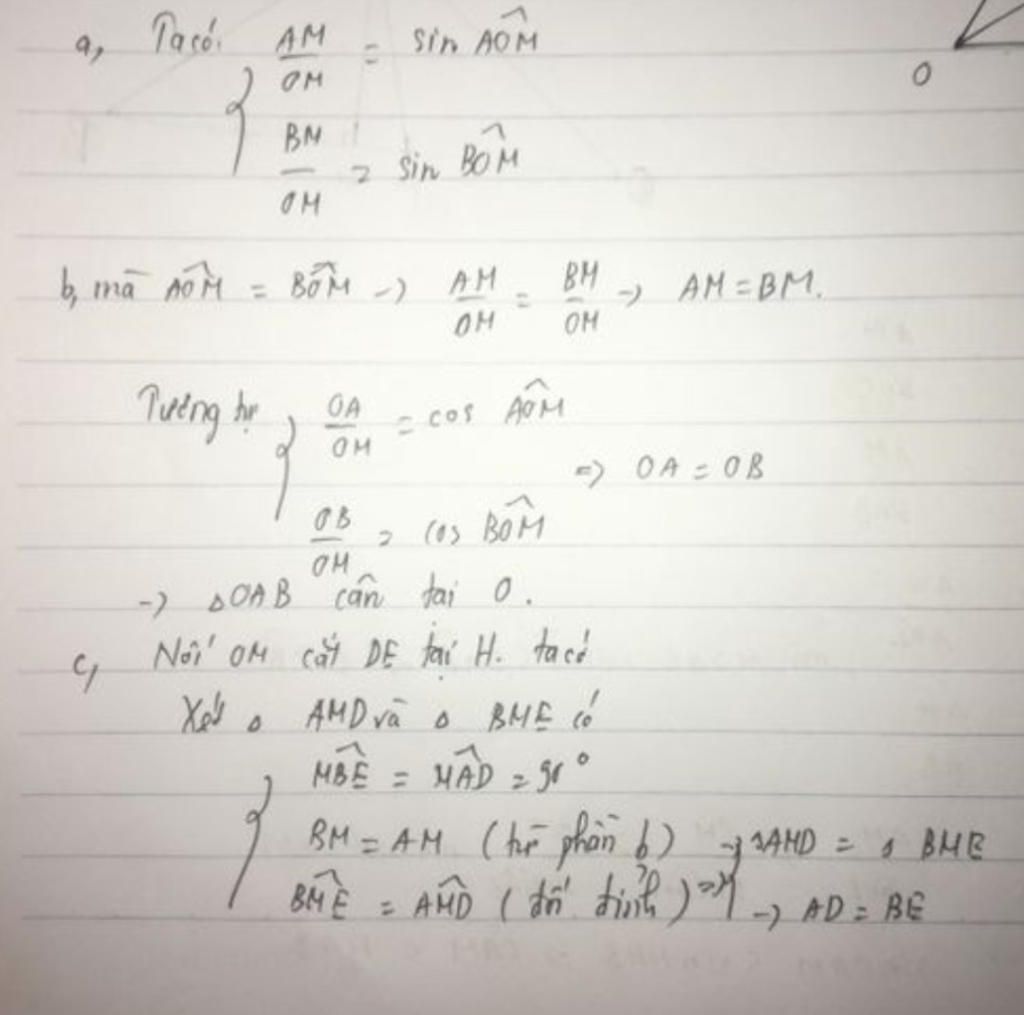 a, Ta có: AM/OM = sin AÔM
O
BM/OM = sin BÔM
b, mà AÔM = BÔM -> AM/OM = BM/OM -> AM = BM.
Tương tự OA/OM = cos AÔM
=> OA = OB
OB/OM = cos BÔM
-> △OAB cân tại O.
c, Nối OM cắt DE tại H. ta có
Xét △ AMD và △ BME có
MB̂E = MÂD = 90°
BM = AM (từ phần b) -> △AMD = △ BME
BM̂E = AM̂D (đối đỉnh) => -> AD = BE